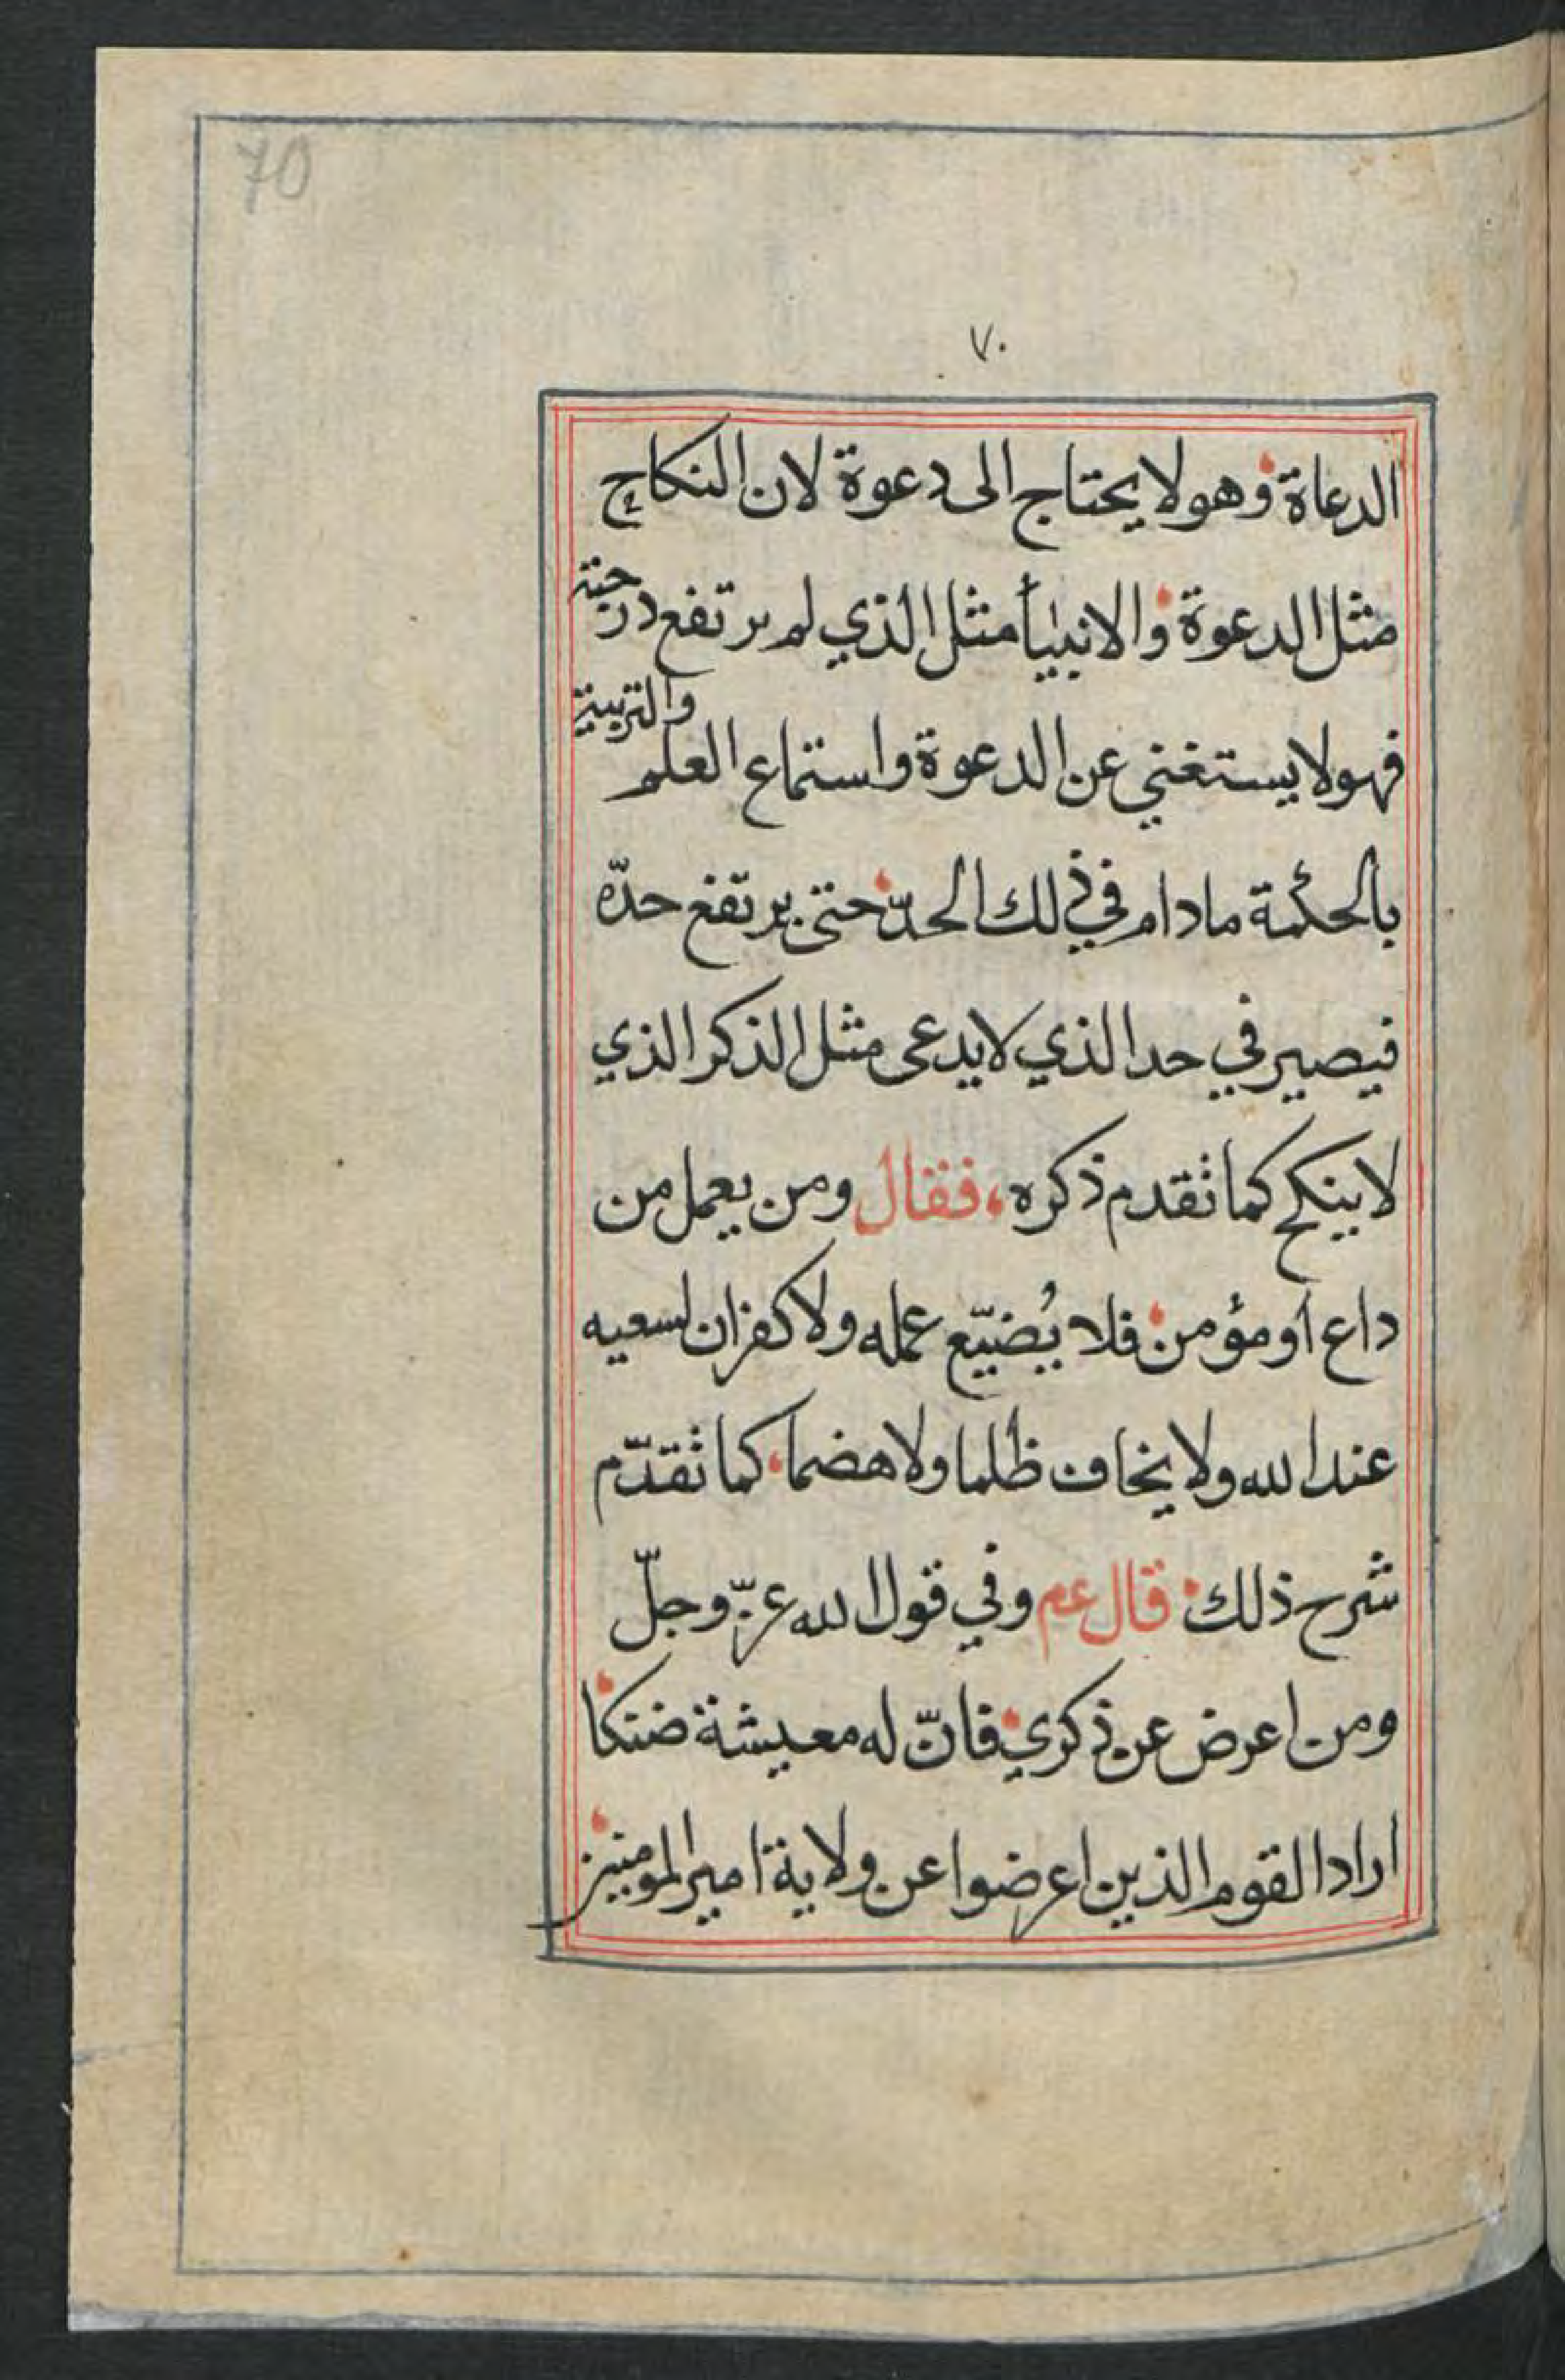 70
٧٠
الدعاة وهو لا يحتاج الى دعوة لان النكاح
مثل الدعوة والانبيأ مثل الذي لم يرتفع درجته
فهو لا يستغني عن الدعوة واستماع العلم والتربية
بالحكمة مادام في ذلك الحدّ حتى يرتفع حدّه
فيصير في حد الذي لا يدعى مثل الذكر الذي
لا ينكح كما تقدم ذكره، فقال ومن يعمل من
داع او مؤمن فلا يُضيّع عمله ولا كفران لسعيه
عند الله ولا يخاف ظلما ولا هضما كما تقدّم
شرح ذلك قال عم وفي قول الله عزّ وجلّ
ومن اعرض عن ذكري فانّ له معيشة ضنكا
اراد القوم الذين اعرضوا عن ولاية امير المومنين